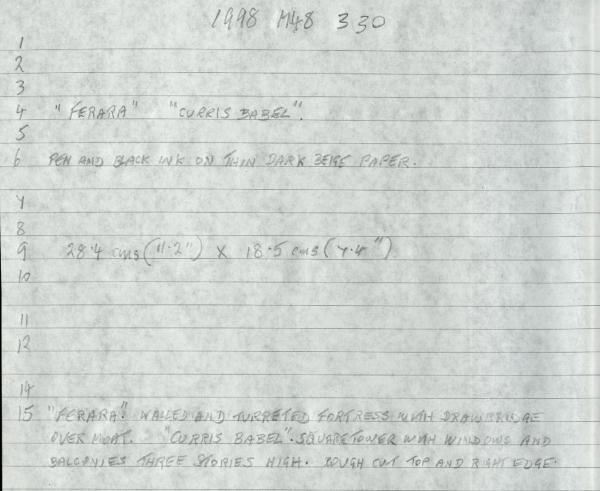 1998 M48 330
1
2
3
4 "FERARA" "CURRIS BABEL".
5
6 PEN AND BLACK INK ON THIN DARK BEIGE PAPER.
7
8
9 28.4 cms (11.2") X 18.5 cms (7.4")
10
11
12
14
15 "FERARA". WALLED AND TURRETED FORTRESS WITH DRAWBRIDGE
OVER MOAT. "CURRIS BABEL". SQUARE TOWER WITH WINDOWS AND
BALCONIES THREE STORIES HIGH. ROUGH CUT TOP AND RIGHT EDGE.